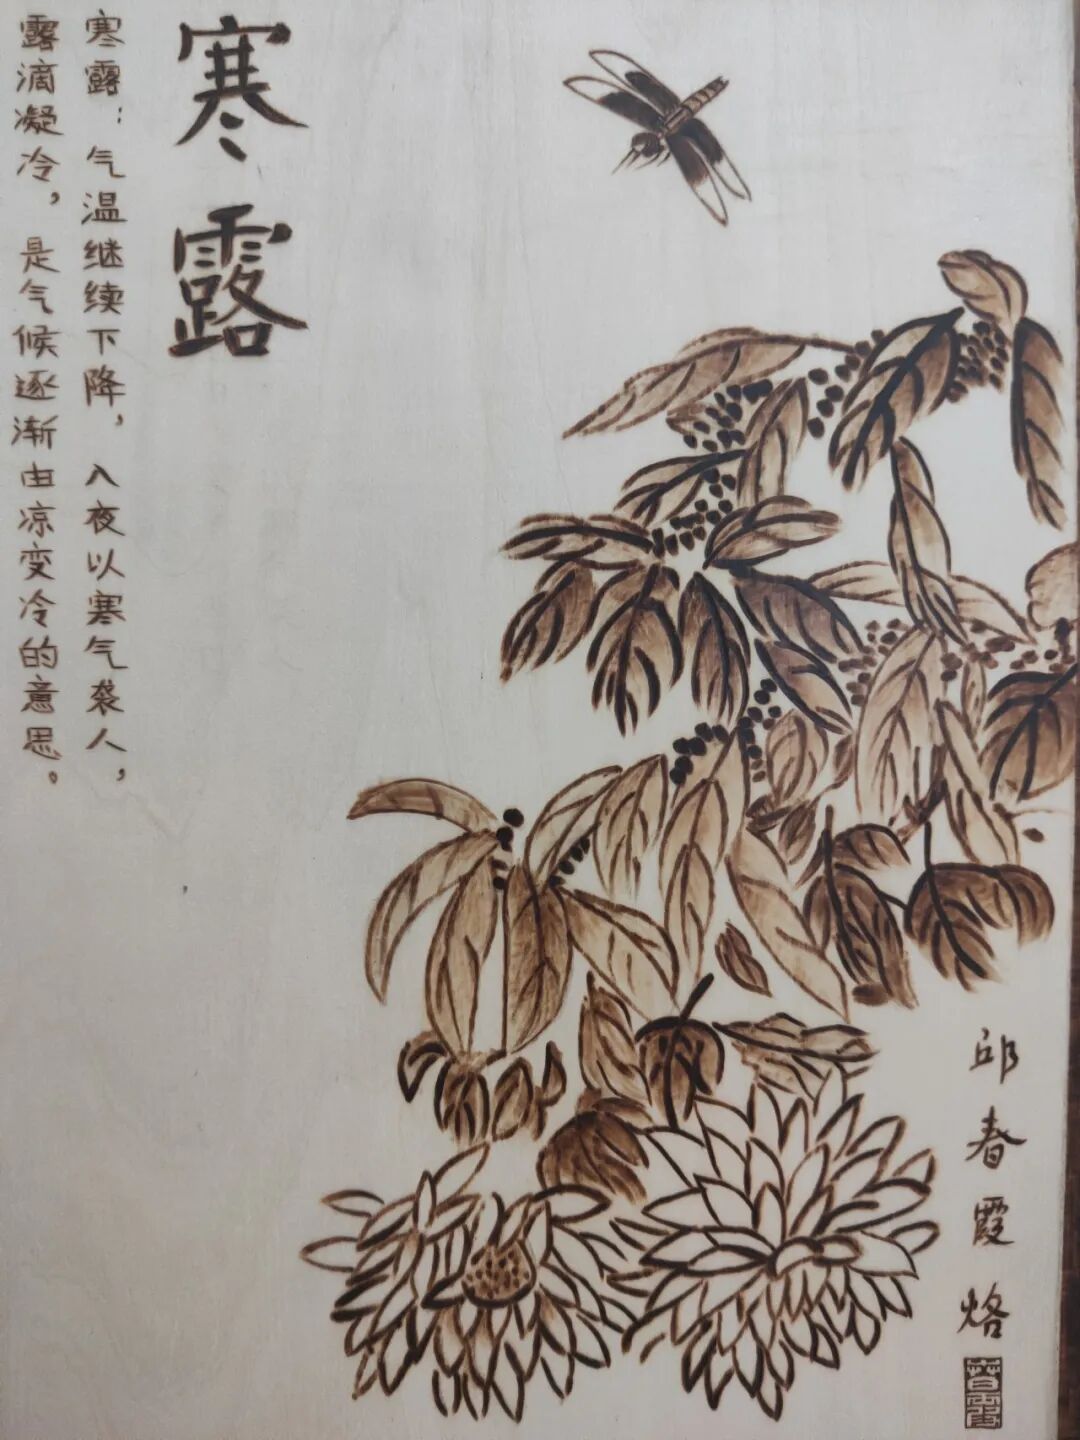 寒露
寒露：气温继续下降，入夜以寒气袭人，
露滴凝冷，是气候逐渐由凉变冷的意思。
邱春霞烙